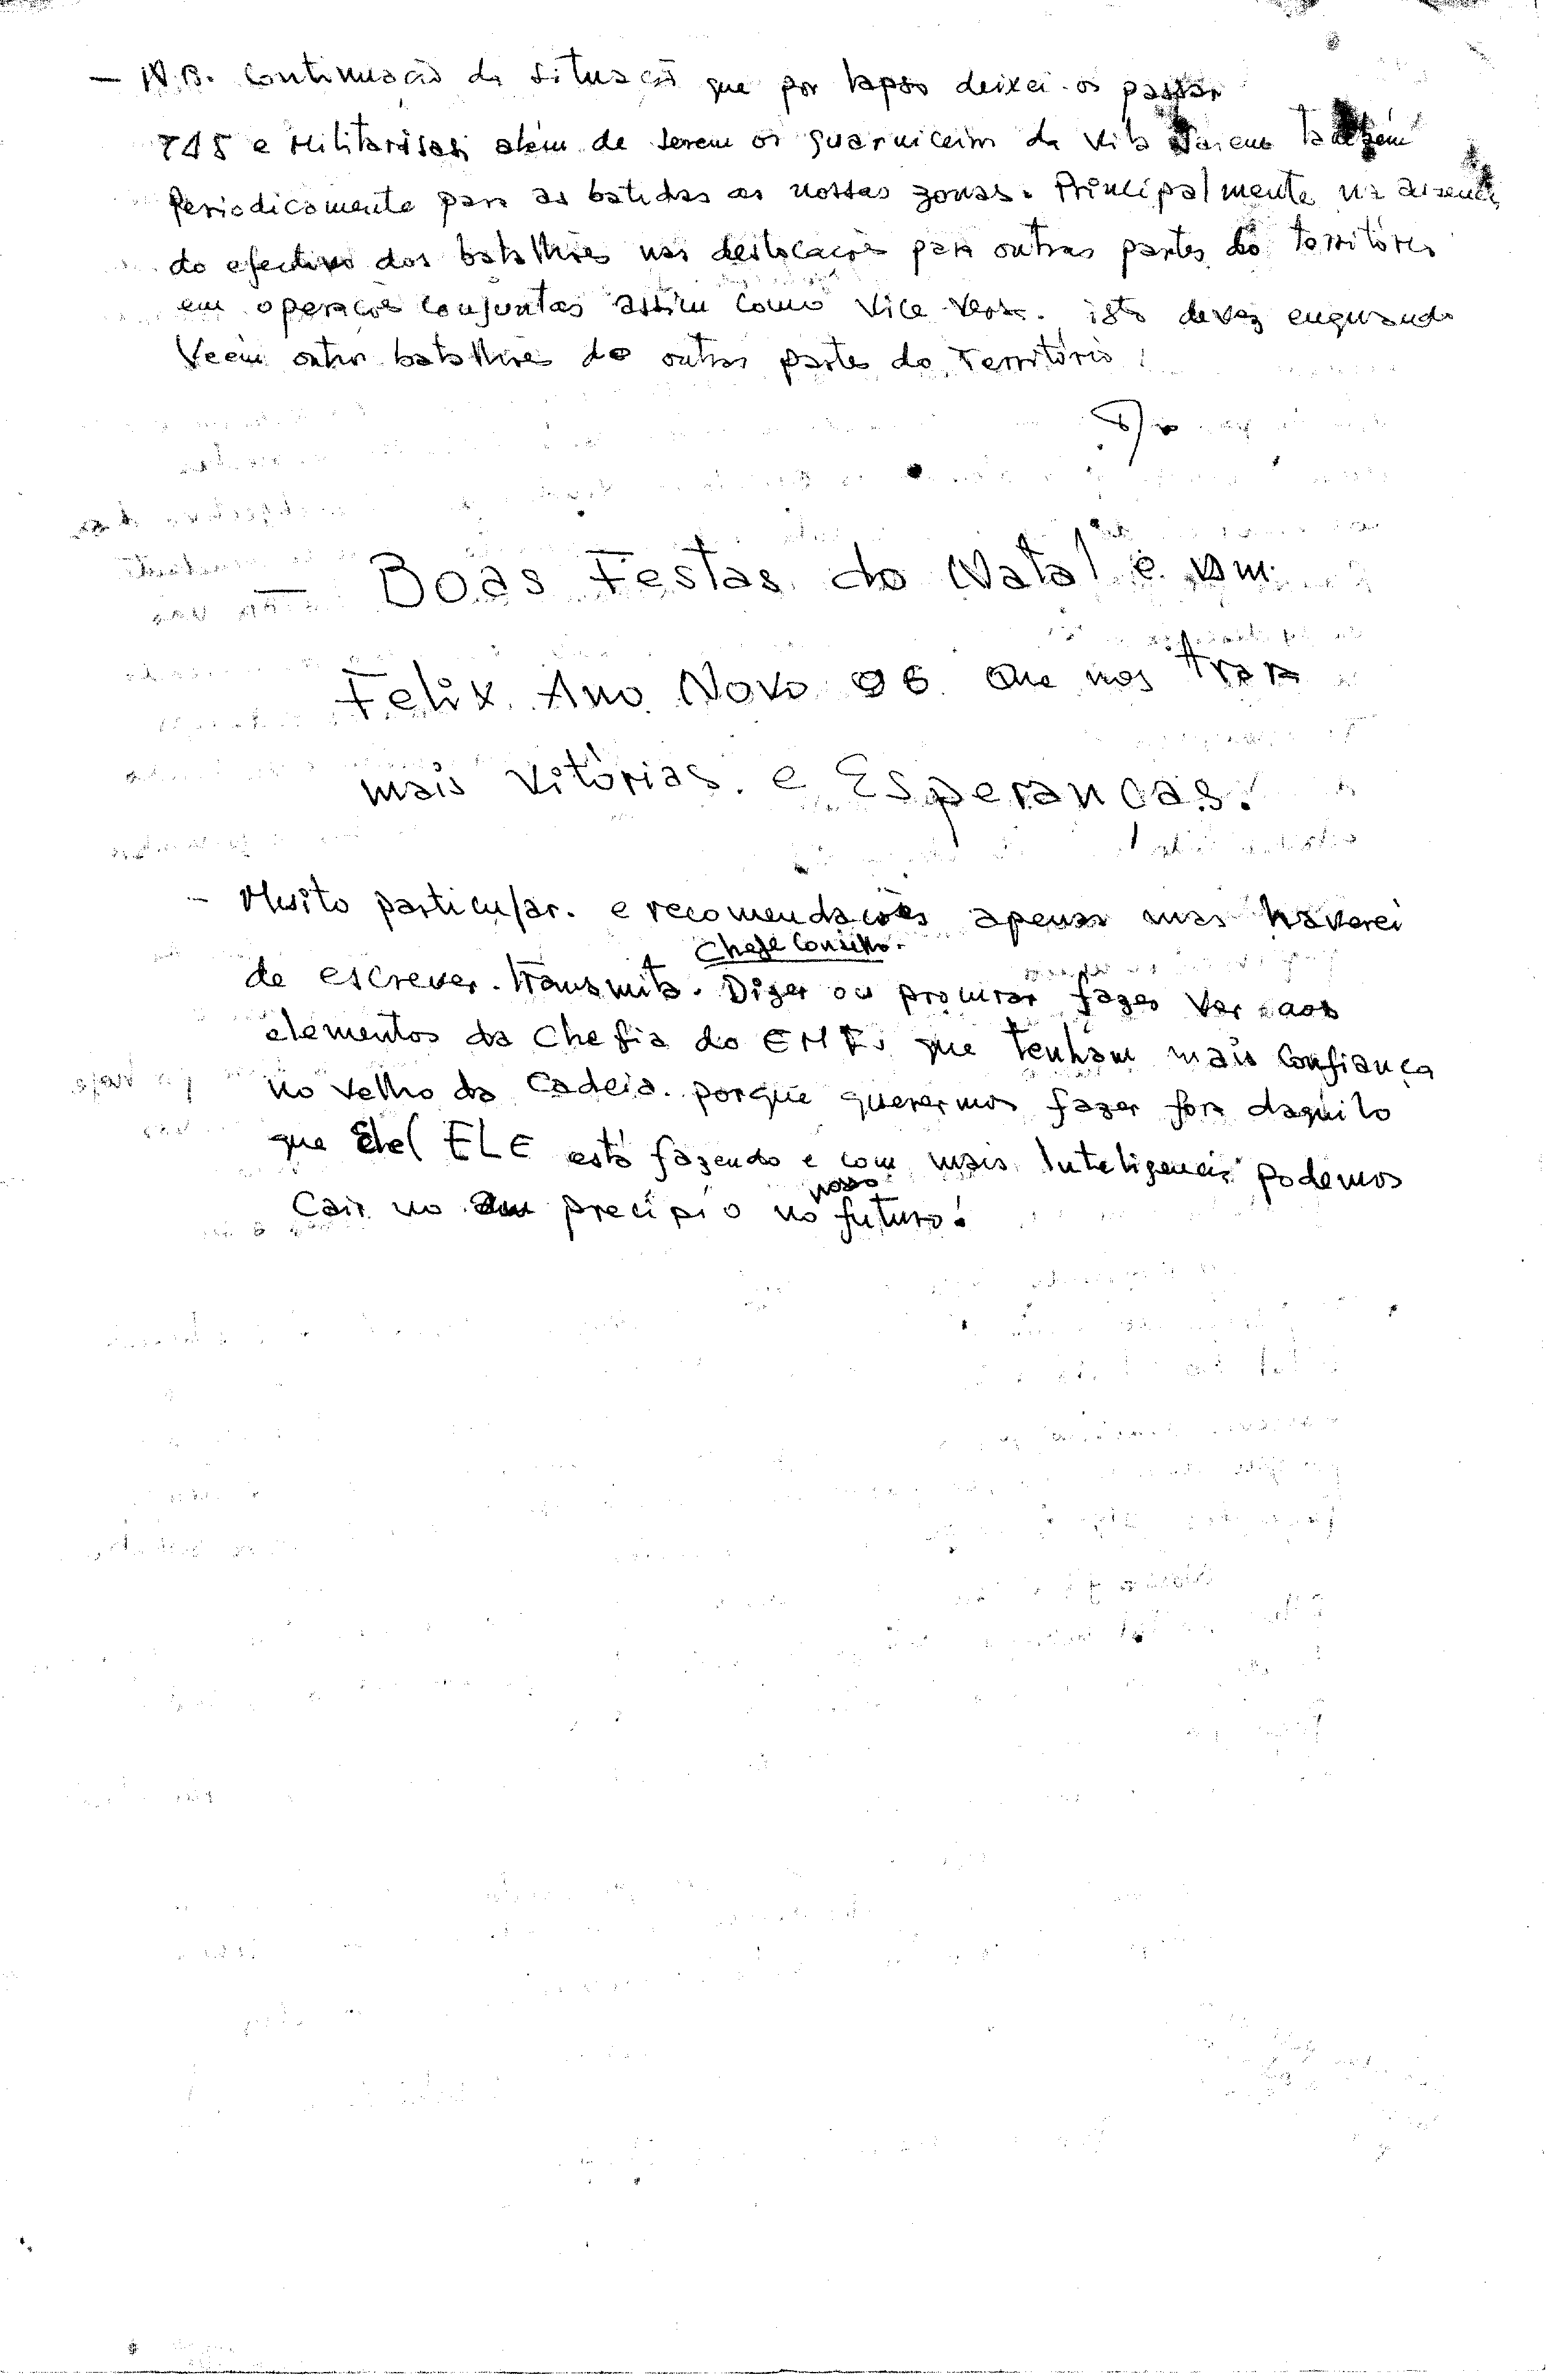 — N.B. Continuação da situação que por lapso deixei-os passar
745 e Militarisas além de serem os guarniceim da Vila também
Periodicamente para as batidas as nossas zonas. Principalmente na ausencia
do efectivo dos batalhões nas deslocações para outras partes do território
em operações conjuntas assim como vice versa. isto devez enquando
Veem outros batalhões de outras partes do Território!
— Boas Festas do Natal e um
Felix Ano Novo 96 Que nos traga
mais vitórias e Esperancas!
- Muito particular. e recomendações apenas mas haverei
Chefe Conselho.
de escrever. transmita. Dizer ou procurar fazer ver aos
elementos da Chefia do que tenham mais Confiança
no velho da Cadeia. porque querermos fazer fora daquilo
que ELE está fazendo e com mais Inteligencia podemos
nosso
Cair no precipio no futuro!